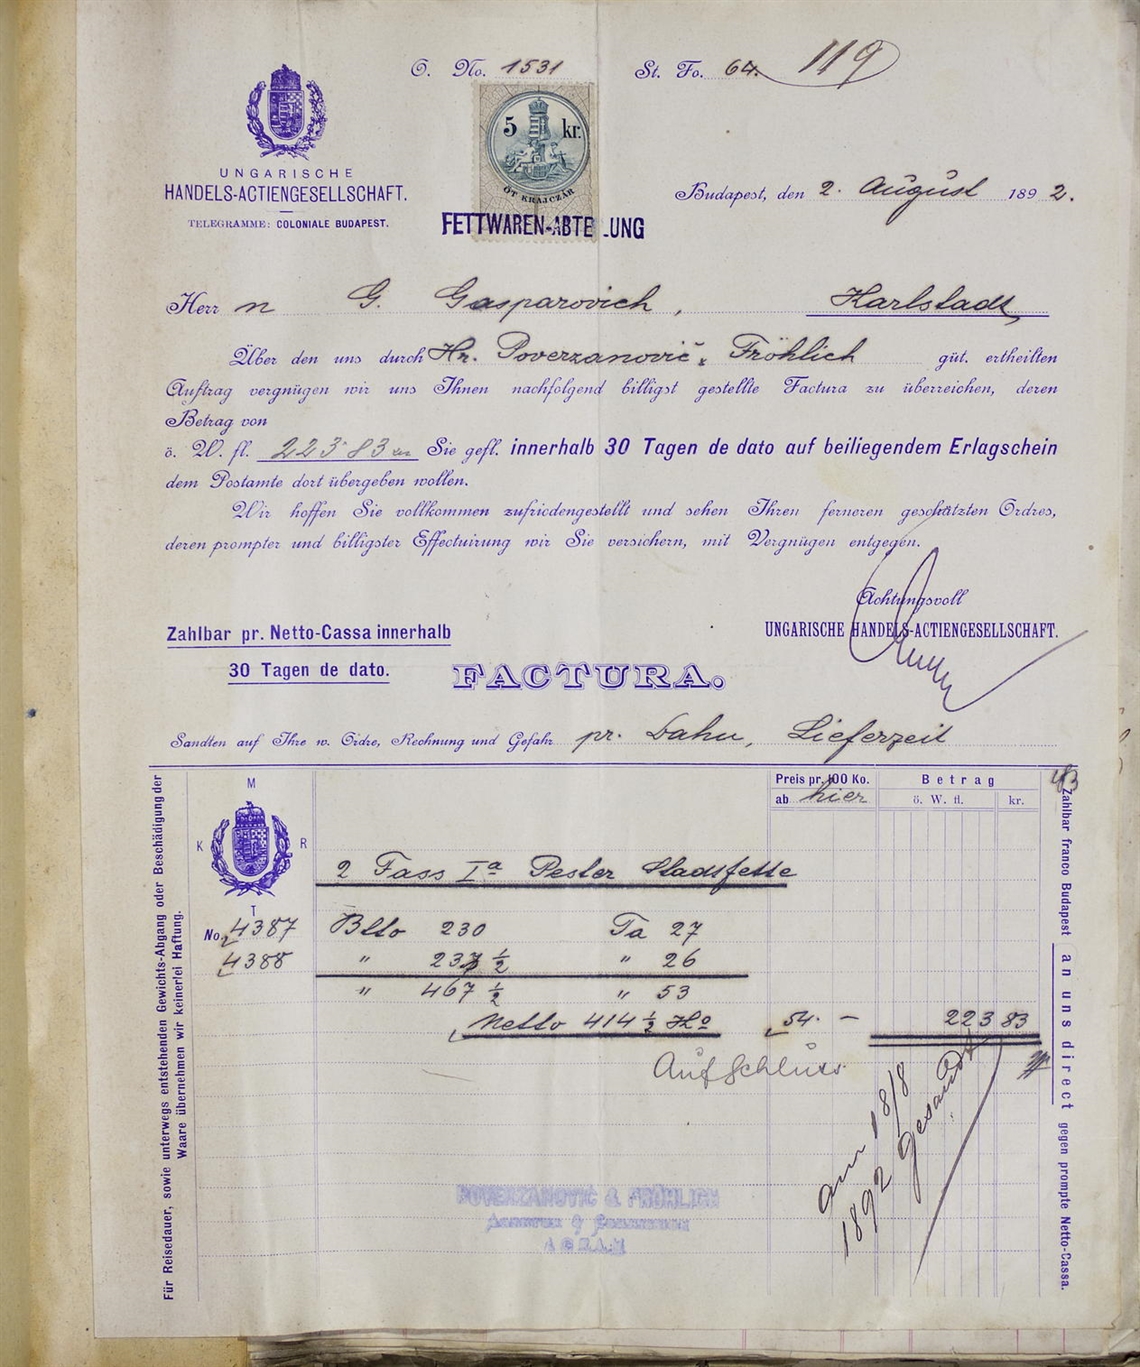 O. No. 1531
St. Fo. 64. 119
5 kr.
ÖT KRAJCZÁR
UNGARISCHE
HANDELS-ACTIENGESELLSCHAFT.
TELEGRAMME: COLONIALE BUDAPEST.
FETTWAREN-ABTEILUNG
Budapest, den 2. August 1892.
Herrn G. Gasparovich, Karlstadt
Über den uns durch Hr. Poverzanovič & Fröhlich güt. ertheilten
Auftrag vergnügen wir uns Ihnen nachfolgend billigst gestellte Factura zu überreichen, deren
Betrag von
ö. W. fl. 223·83 Sie gefl. innerhalb 30 Tagen de dato auf beiliegendem Erlagschein
dem Postamte dort übergeben wollen.
Wir hoffen Sie vollkommen zufriedengestellt und sehen Ihren ferneren geschätzten Ordres,
deren prompter und billigster Effectuirung wir Sie versichern, mit Vergnügen entgegen.
Achtungsvoll
UNGARISCHE HANDELS-ACTIENGESELLSCHAFT.
Zahlbar pr. Netto-Cassa innerhalb
30 Tagen de dato.
FACTURA.
Sandten auf Ihre w. Ordre, Rechnung und Gefahr pr. Bahn, Lieferzeit
Preis pr. 100 Ko.
ab hier
Betrag
ö. W. fl. kr.
M
K R
T
2 Fass Iª Pester Stadtfette
No. 4387 Btto 230 Ta 27
4388 " 237 ½ " 26
" 467 ½ " 53
Netto 414 ½ Ko 54. — 223 83
Aufschluss
am 18/8
1892 gesandt
POVERZANOVIĆ & FRÖHLICH
AGRAM
Für Reisedauer, sowie unterwegs entstehenden Gewichts-Abgang oder Beschädigung der
Waare übernehmen wir keinerlei Haftung.
Zahlbar franco Budapest an uns direct gegen prompte Netto-Cassa.